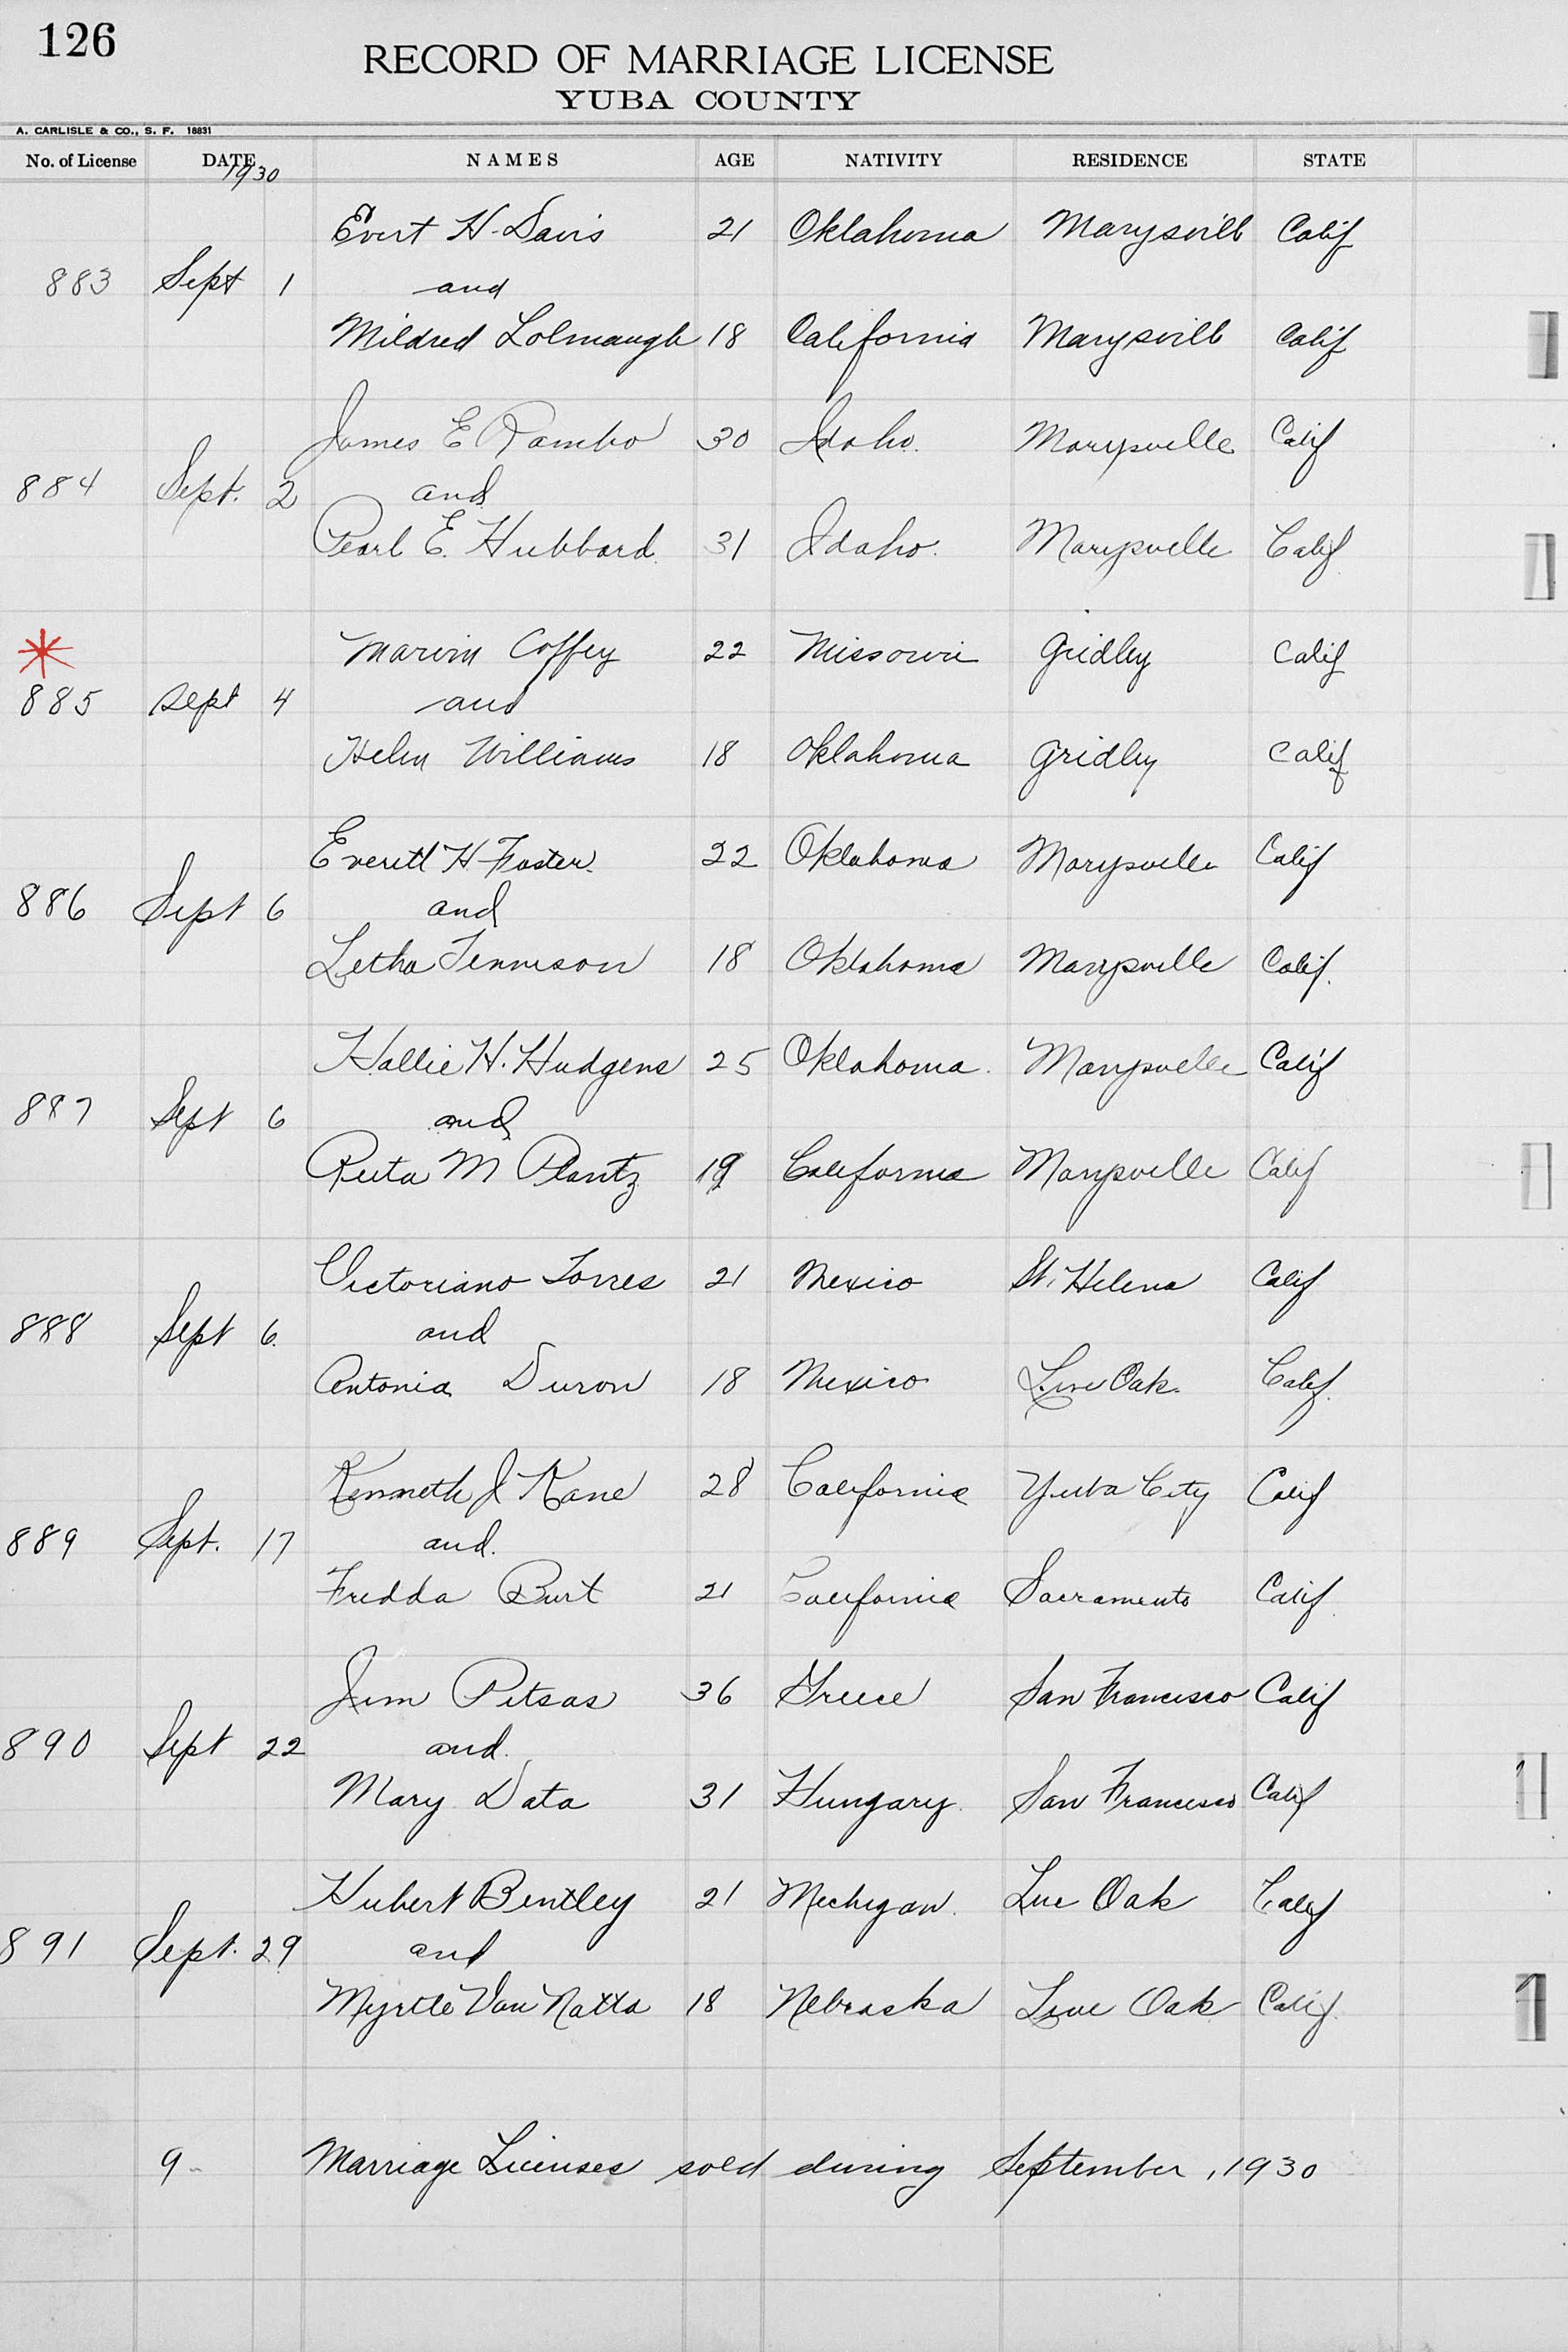 126
RECORD OF MARRIAGE LICENSE
YUBA COUNTY
A. CARLISLE & CO., S. F. 18831
No. of License DATE NAMES AGE NATIVITY RESIDENCE STATE
1930
Evert H. Davis 21 Oklahoma Marysvill Calif
883 Sept 1 and
Mildred Lolmaugh 18 California Marysvill Calif
James E Rambo 30 Idaho. Marysville Calif
884 Sept. 2 and
Pearl E. Hubbard. 31 Idaho. Marysville Calif
Marvin Coffey 22 Missouri Gridley Calif
885 Sept 4 and
Helen Williams 18 Oklahoma Gridley Calif
Everett H Foster. 22 Oklahoma Marysville Calif
886 Sept 6 and
Letha Tennison 18 Oklahoma Marysville Calif.
Hallie H. Hudgens 25 Oklahoma. Marysville Calif
887 Sept 6 and
Reita M Plantz 19 California Marysville Calif
Victoriano Torres 21 Mexico St. Helena Calif
888 Sept 6. and
Antonia Duron 18 Mexico Live Oak. Calif.
Kenneth J Kane 28 California Yuba City Calif
889 Sept. 17 and.
Fredda Burt 21 California Sacramento Calif.
Jim Pitsas 36 Greece San Francisco Calif
890 Sept 22 and.
Mary Data 31 Hungary. San Francisco Calif
Hubert Bentley 21 Michigan. Live Oak Calif
891 Sept. 29 and
Myrtle Van Natta 18 Nebraska Live Oak Calif.
9 Marriage Licenses sold during September, 1930